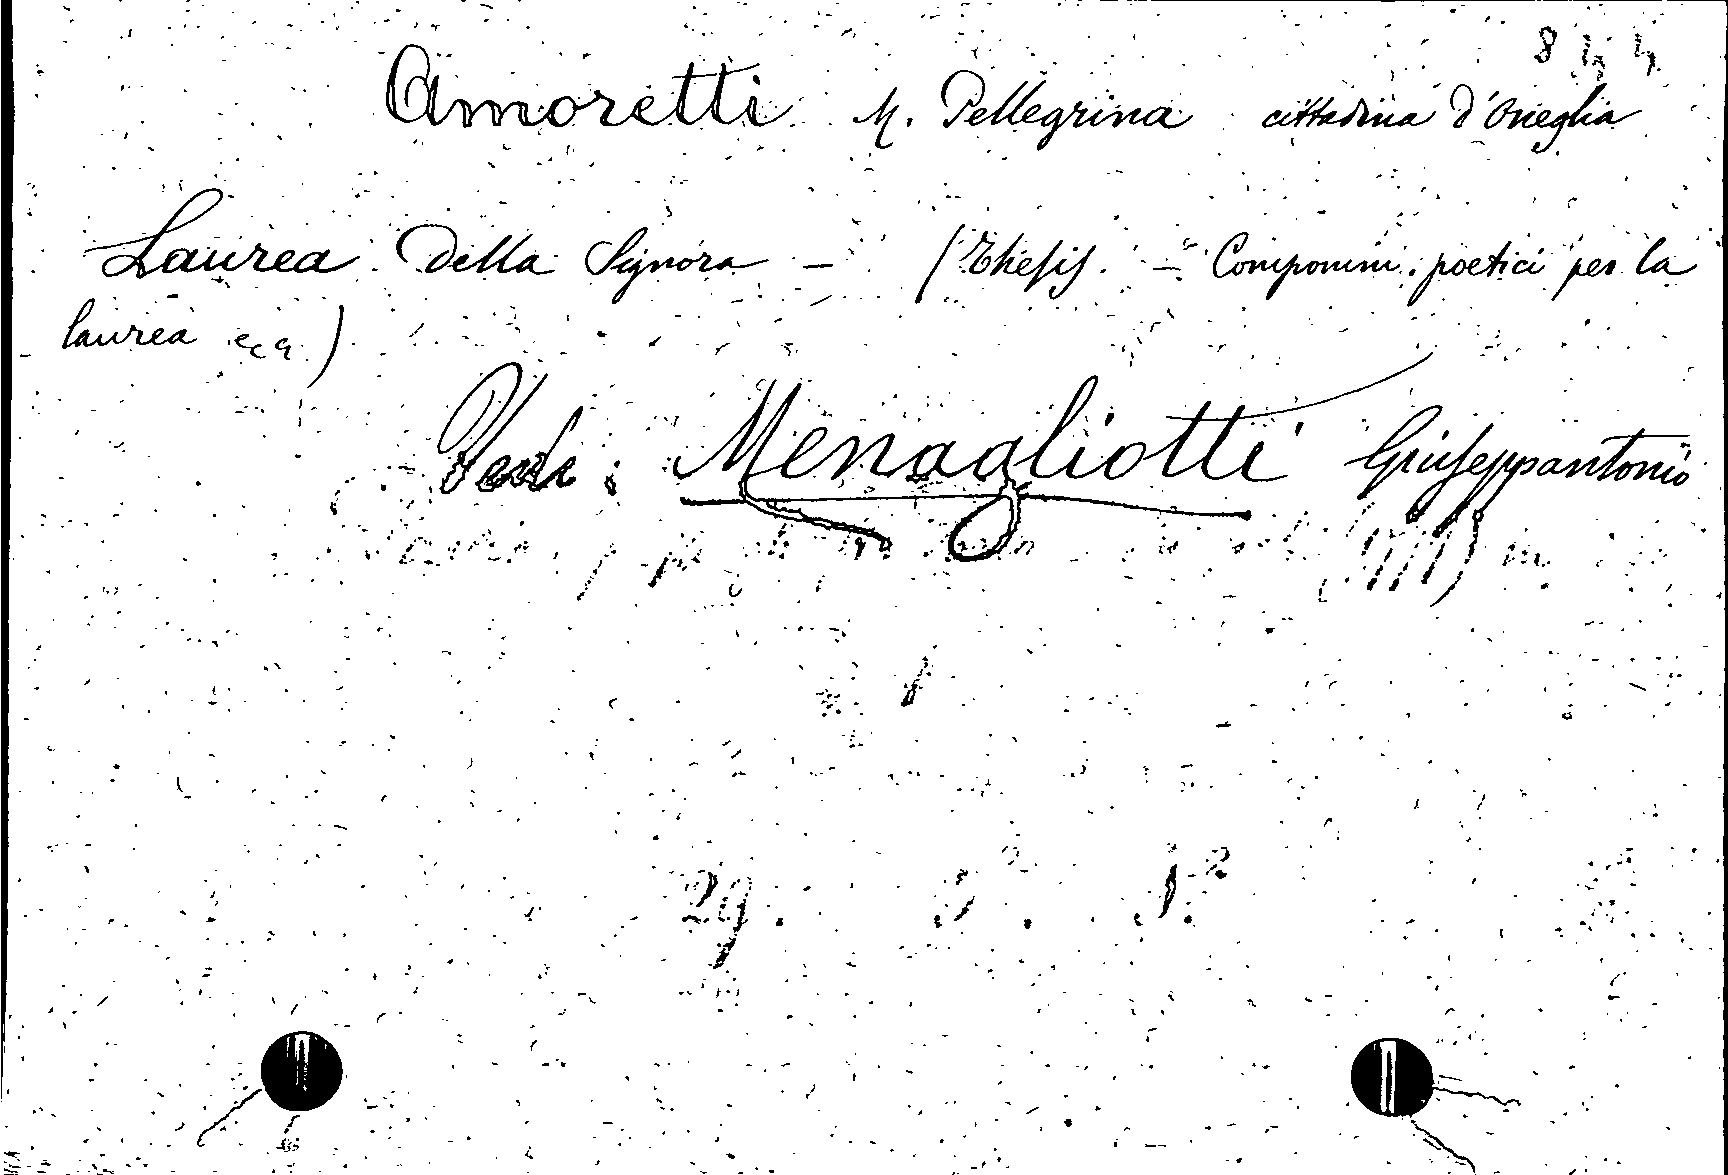 844
Amoretti M. Pellegrina cittadina d'Oneglia
Laurea della Signora – (Thesis. – Componim. poetici per la
laurea ecc.)
Vedi: Menagliotti Giuseppantonio
(1777) in
29. 3. 1.2